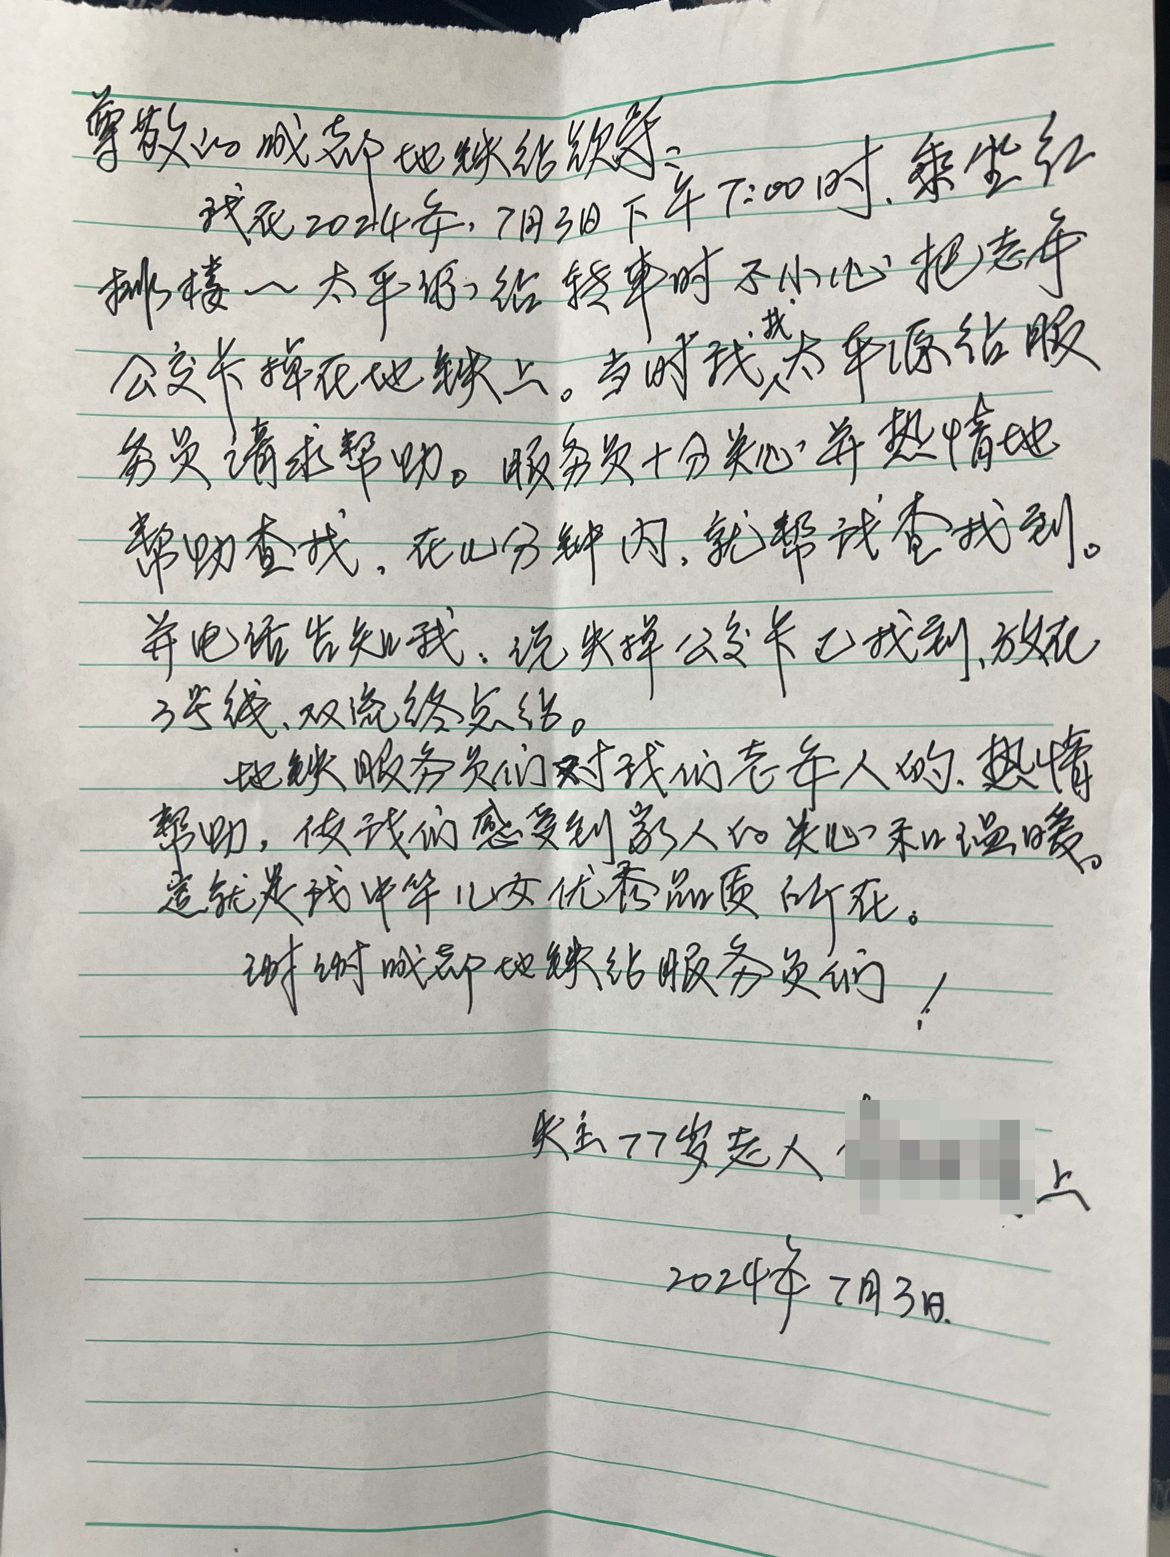 尊敬的成都地铁站领导:
我在2024年,7月3日下午7:00时,乘坐红
牌楼~太平源站转车时不小心把老年
公交卡掉在地铁上。当时我找太平源站服
务员请求帮助。服务员十分关心并热情地
帮助查找,在几分钟内,就帮我查找到。
并电话告知我,说失掉公交卡已找到,放在
3号线、双流终点站。
地铁服务员们对我们老年人的,热情
帮助,使我们感受到家人的关心和温暖。
这就是我中华儿女优秀品质所在。
谢谢成都地铁站服务员们!
失主77岁老人
上
2024年7月3日.